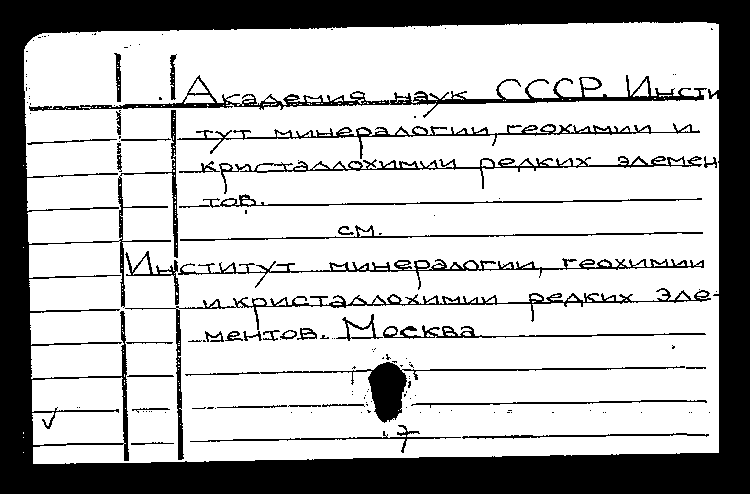 Академия наук СССР. Инсти
тут минералогии, геохимии и
кристаллохимии редких элемен
тов.
см.
Институт минералогии, геохимии
и кристаллохимии редких эле-
ментов. Москва
7